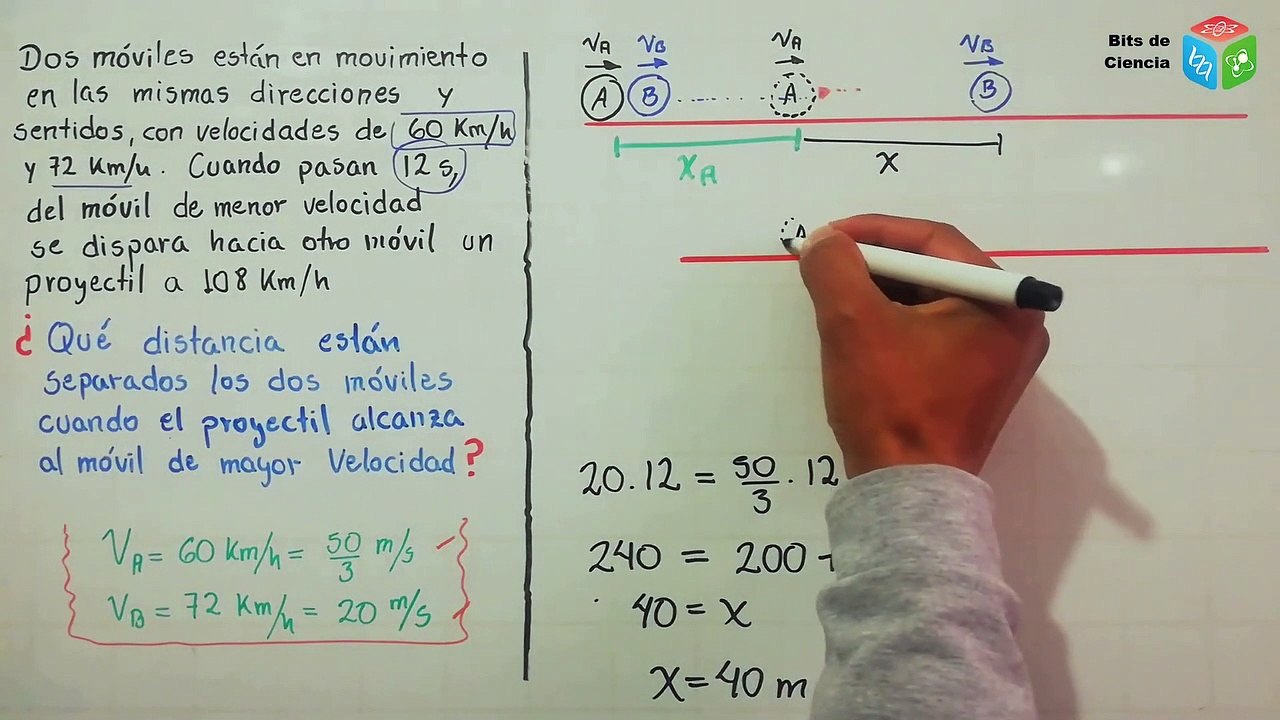 Dos móviles están en movimiento
en las mismas direcciones y
sentidos, con velocidades de 60 Km/h
y 72 Km/h. Cuando pasan 12 s,
del móvil de menor velocidad
se dispara hacia otro móvil un
proyectil a 108 Km/h
¿Qué distancia están
separados los dos móviles
cuando el proyectil alcanza
al móvil de mayor Velocidad?
VA = 60 Km/h = 50/3 m/s
VB = 72 Km/h = 20 m/s
VA VB VA VB
A B A B
XA X
A
20.12 = 50/3 . 12
240 = 200 +
40 = x
x = 40 m
Bits de
Ciencia